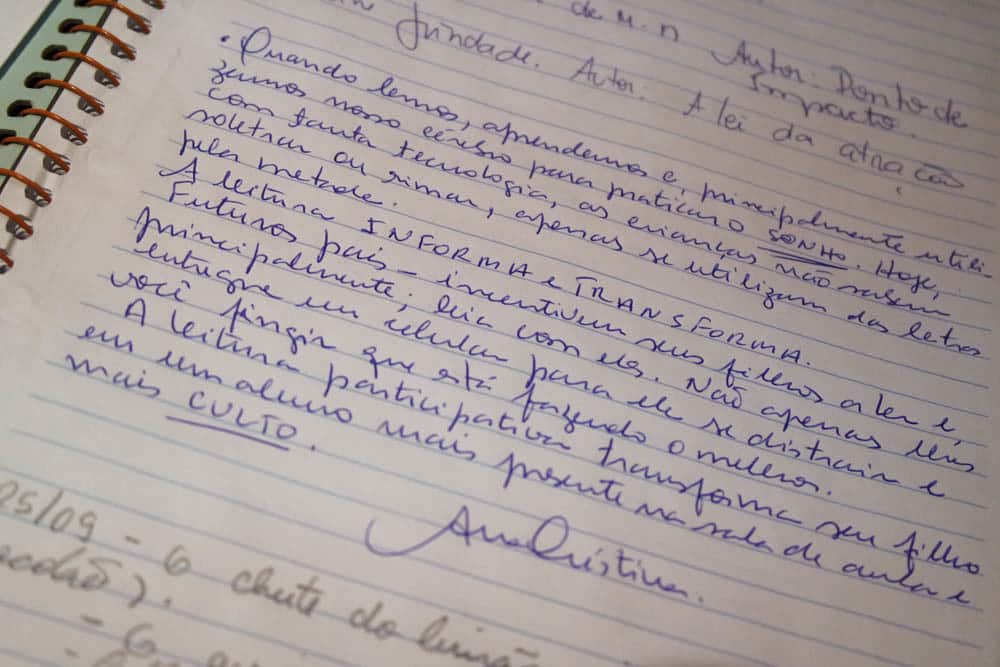 de M. n Autor: Ponto de
Impacto.
Jundade. Autor: A lei da atração
• Quando lemos, aprendemos e, principalmente utili
zamos nosso cérebro para praticar o SONHO. Hoje,
com tanta tecnologia, as crianças não sabem
soletrar ou rimar, apenas se utilizam das letras
pela metade.
A leitura INFORMA e TRANSFORMA.
Futuros pais – incentivem seus filhos a ler e,
principalmente, leia com eles. Não apenas lhes
entregue um celular para ele se distrair e
você fingir que está fazendo o melhor.
A leitura participativa transforma seu filho
em um aluno mais presente na sala de aula e
mais CULTO.
Ana Cristina.
25/09 - G chute do
- G